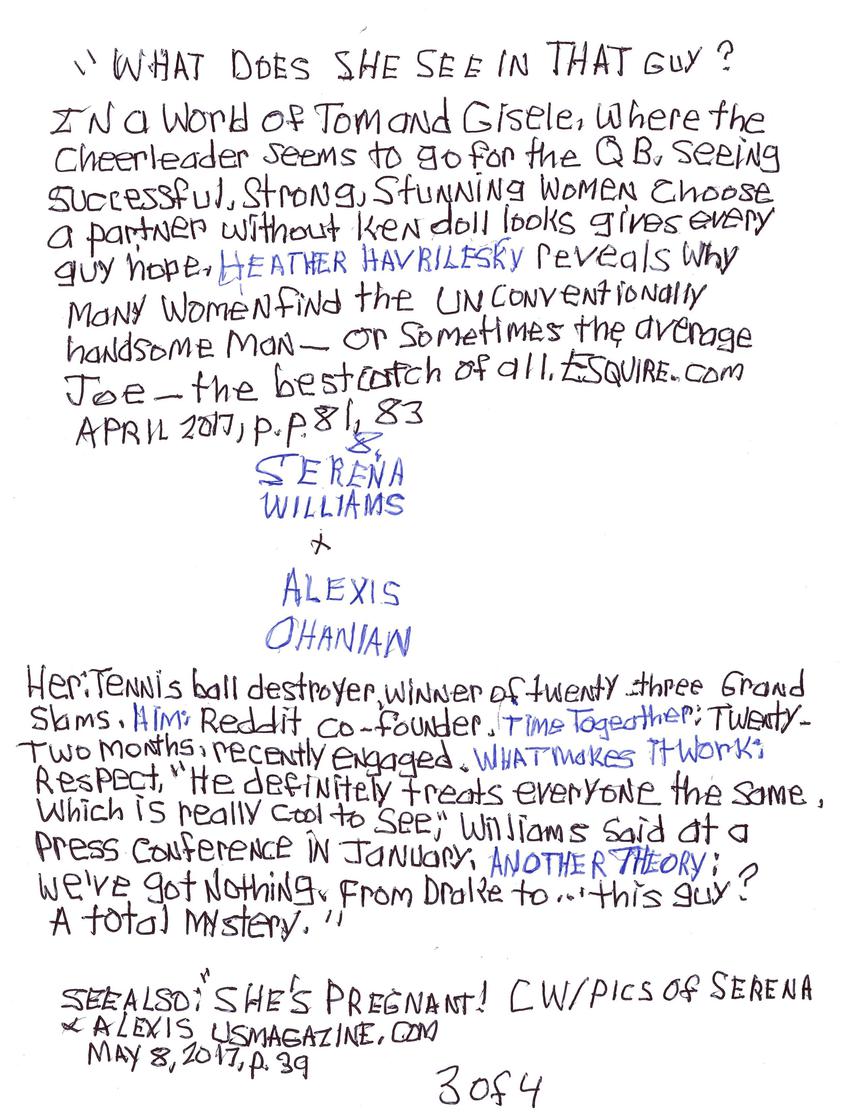 "WHAT DOES SHE SEE IN THAT GUY?
IN a World of Tom and Gisele, Where the
Cheerleader seems to go for the QB, seeing
successful, Strong, Stunning Women Choose
a partner without Ken doll looks gives every
guy hope. HEATHER HAVRILESKY reveals Why
Many Women find the UNConventionally
handsome Man— or Sometimes the average
Joe— the best catch of all. ESQUIRE.com
APRIL 2017, p.p. 81, 83
8.
SERENA
WILLIAMS
+
ALEXIS
OHANIAN
Her: Tennis ball destroyer, winner of twenty-three Grand
Slams. HIM: Reddit co-founder. Time Togeather: Twenty-
Two months, recently engaged. WHAT Makes It Work:
Respect. "He definitely treats everyone the same,
Which is really cool to see," Williams Said at a
Press Conference in January. ANOTHER THEORY:
We've got Nothing. From Drake to ... this guy?
A total Mystery."
SEE ALSO: "SHE'S PREGNANT! CW/PICS Of SERENA
& ALEXIS USMAGAZINE.COM
MAY 8, 2017, p. 39
3 of 4